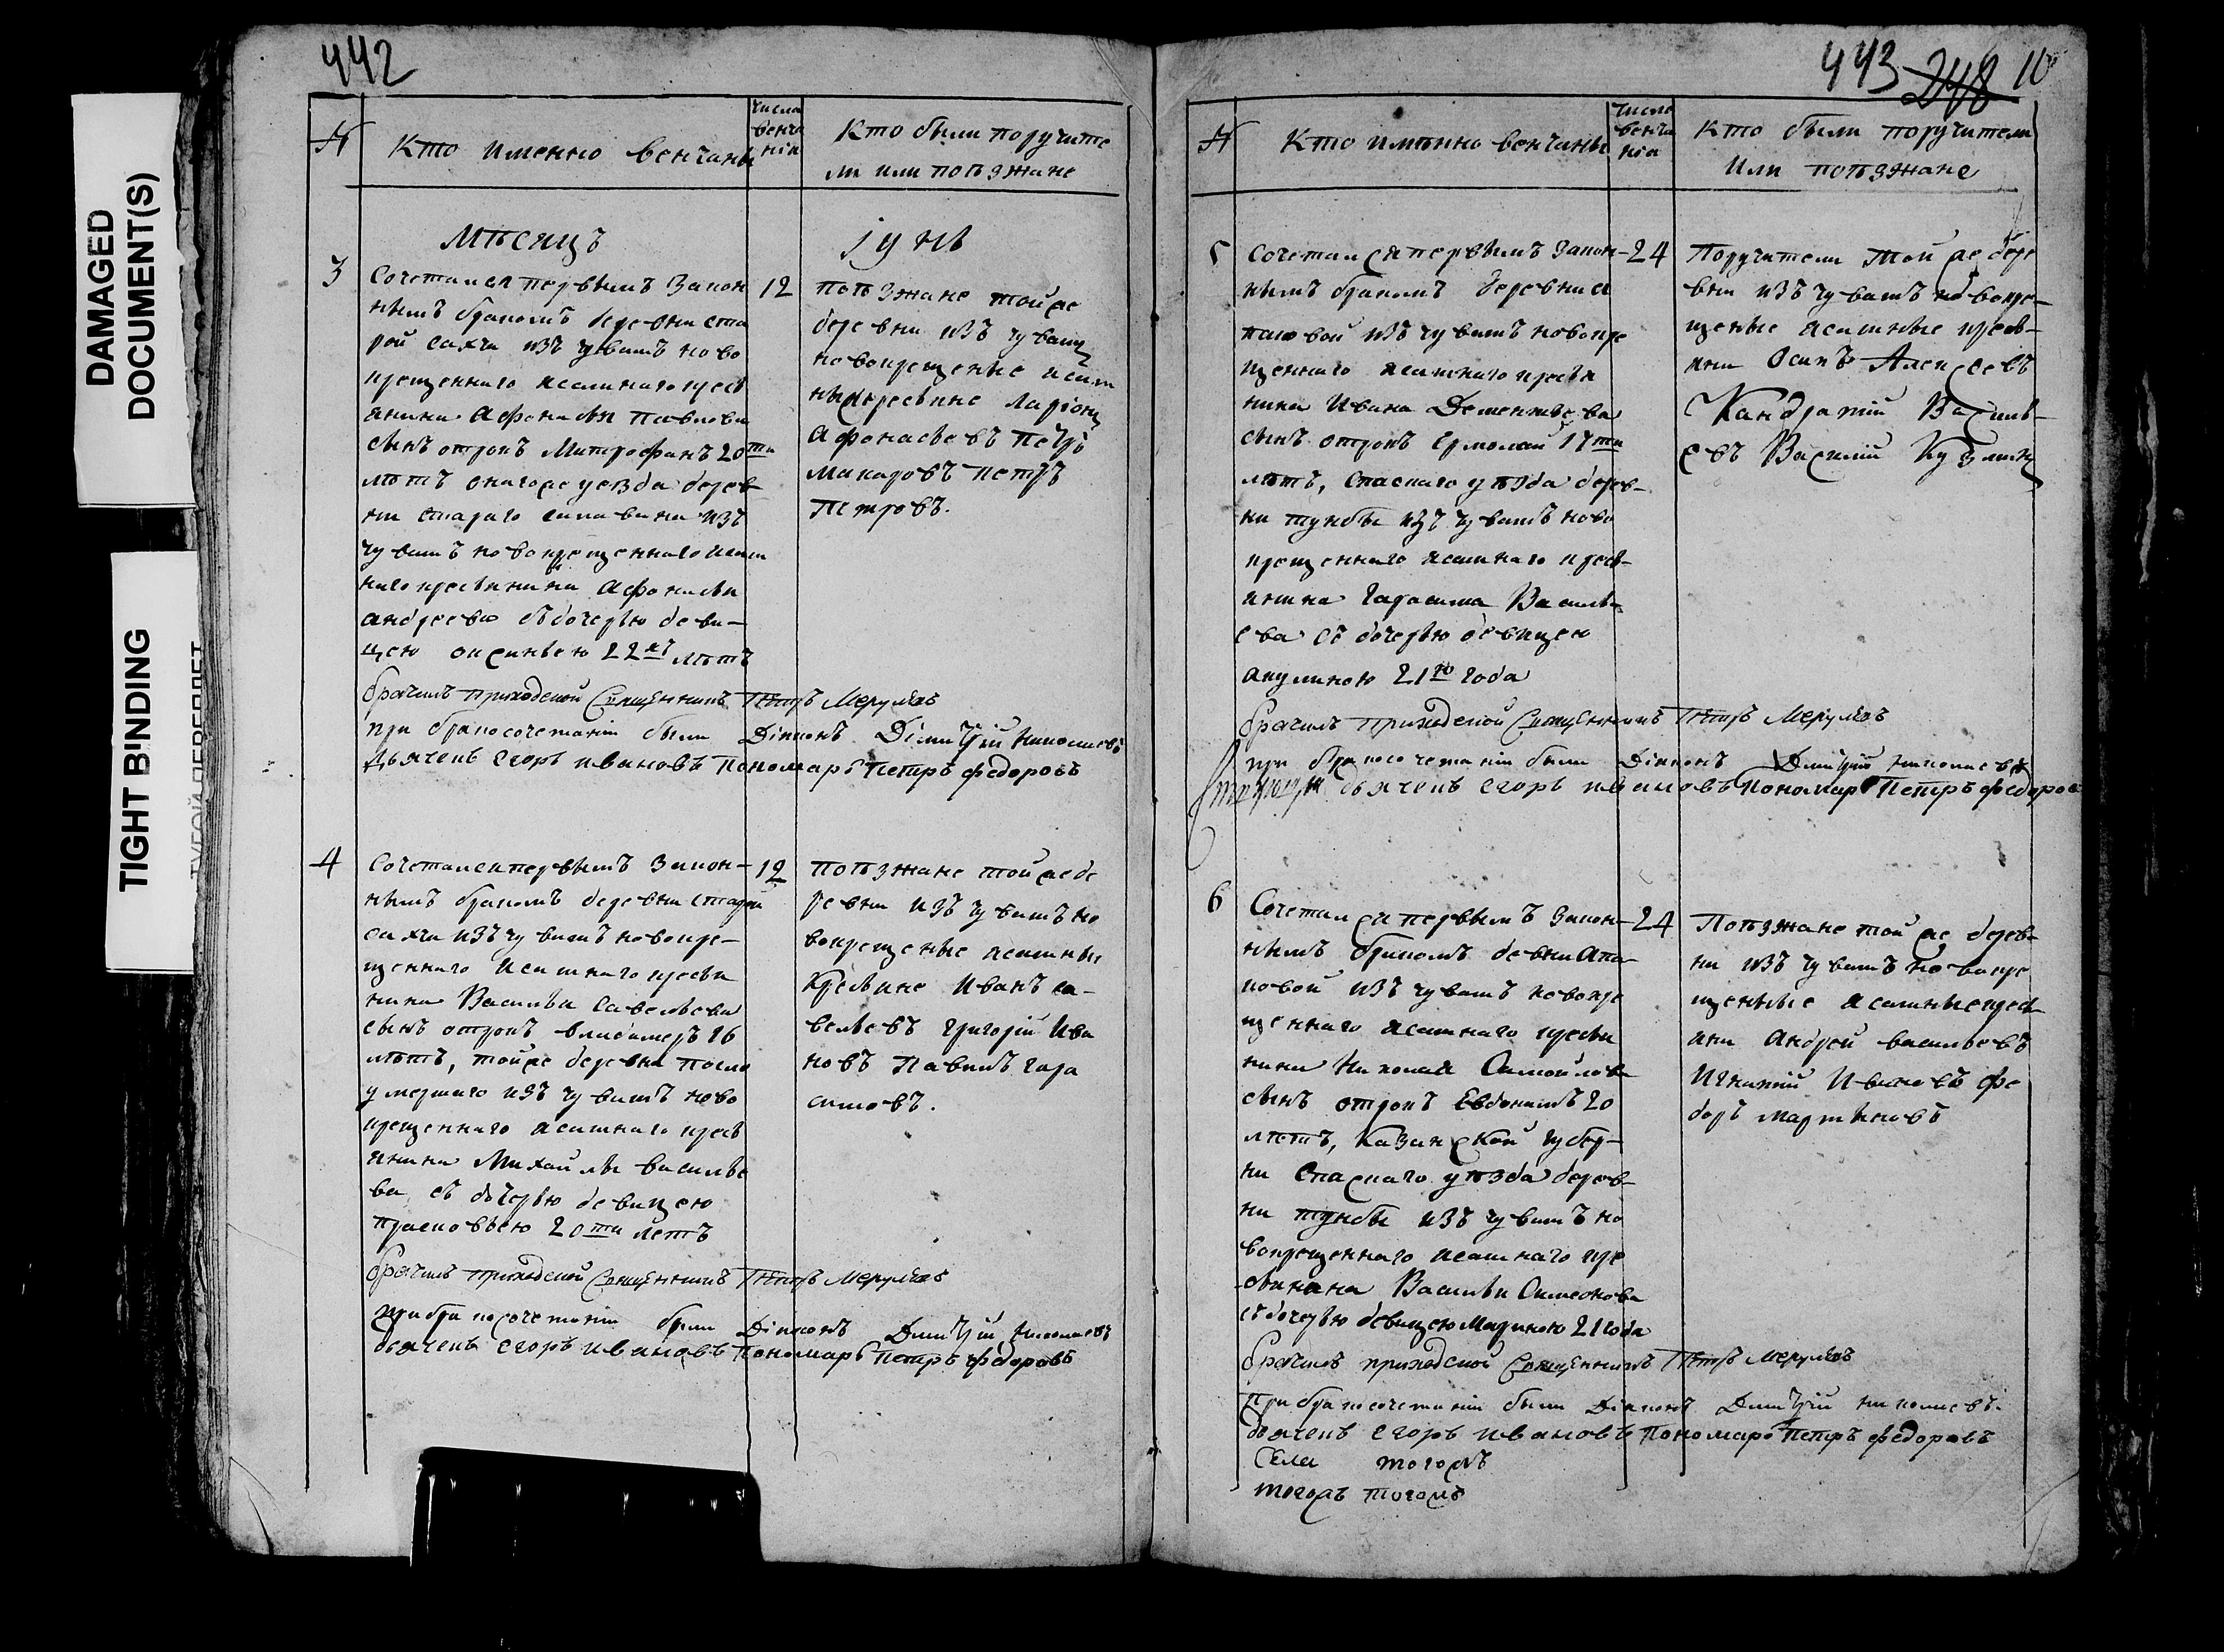 442
№
Кто именно венчаны
числа
венча
нія
Кто были поручите
ли или поѣзжане
Мѣсяцъ
Іунь
3
Сочетался первымъ закон
12
нымъ бракомъ деревни ста
рой сахчи изъ чувашъ ново
крещеннаго ясашнаго кресть
янина Афонасья Павлова
сынъ отрокъ Митрофанъ 20ти
лѣтъ онагоже уезда дерев
ни стараго из
чувашъ новокрещеннаго ясаш
наго крестьянина Афонасья
андреева съ дочерью деви-
цею оксиньею 22хъ лѣтъ
поѣзжане тойже
деревни изъ чуваш
новокрещеные ясаш
ные крестьяне Ларіонъ
Афонасьевъ Петръ
Макаровъ Петръ
Петровъ.
брачилъ приходской Священникъ Петръ
при бракосочетаніи были Діаконъ Дімитрій Николаевъ
Дьячекъ Егоръ Ивановъ Пономарь Петръ Федоровъ
4
Сочетался первымъ закон-
12
нымъ бракомъ деревни старой
сахчи изъ чувашъ новокре-
щеннаго ясашнаго кресть
янина Василья Савельева
сынъ отрокъ владимеръ 16
лѣтъ, тойже деревни после
умершаго изъ чувашъ ново
крещеннаго ясашнаго кресть
янина Михайлы василье
ва, съ дочерью девицею
прасковьею 20ти летъ
поѣзжане тойже де
ревни изъ чувашъ но
вокрещеные ясашны
крестьяне Иванъ са-
вельевъ григорій Ива
новъ Павилъ гара
симовъ.
брачилъ приходской Священникъ Петръ
при бракосочетаніи были Діаконъ Димитрій Николаевъ
дьячекъ Егоръ Ивановъ Пономарь Петръ Федоровъ
443 248 10
№
Кто имянно венчаны
числа
венча
нія
Кто были поручители
или поѣзжане
5
Сочетался первымъ закон-
24
нымъ бракомъ деревни а
паковой изъ чувашъ новокре
щеннаго ясашнаго кресть
нина Ивана Дементьева
сынъ отрокъ Ермолай 17ти
лѣтъ, Спаскаго уѣзда дерев-
ни тунбы изъ чувашъ ново
крещеннаго ясашнаго кресть-
янина Гарасима Василь-
ева съ дочерью девицею
акулиною 21го года
Поручители той же дере
вни изъ чувашъ новокре-
щеные ясашные кресть-
яни Осипъ Алексеевъ
Кандратій Василь-
евъ Василій Кузминъ
брачилъ приходской Священникъ Петръ
при бракосочетаніи были Діаконъ Дмитрій Николаевъ
дьячекъ Егоръ Ивановъ Пономарь Петръ Федоровъ
6
Сочетался первымъ закон-
24
нымъ бракомъ девни Апа-
ковой изъ чувашъ новокре
щеннаго ясашнаго кресть
нина Николая Самойлова
сынъ отрокъ Евдокимъ 20
лѣтъ, Казанской губер-
ни Спаскаго уѣзда дерев-
ни тунбы изъ чувашъ но
вокрещеннаго ясашнаго кре
стьянина Василья Симеонова
съ дочерью девицею Мариною 21 года
Поѣзжане той же дерев-
ни изъ чувашъ новокре
щеные ясашные кресть-
яни Андрей васильевъ
Игнатий Ивановъ фе
доръ мартыновъ
брачилъ приходской Священникъ Петръ
При бракосочетаніи были Діаконъ Димитрій николаевъ.
дьячекъ Егоръ Ивановъ Пономарь Петръ Федоровъ